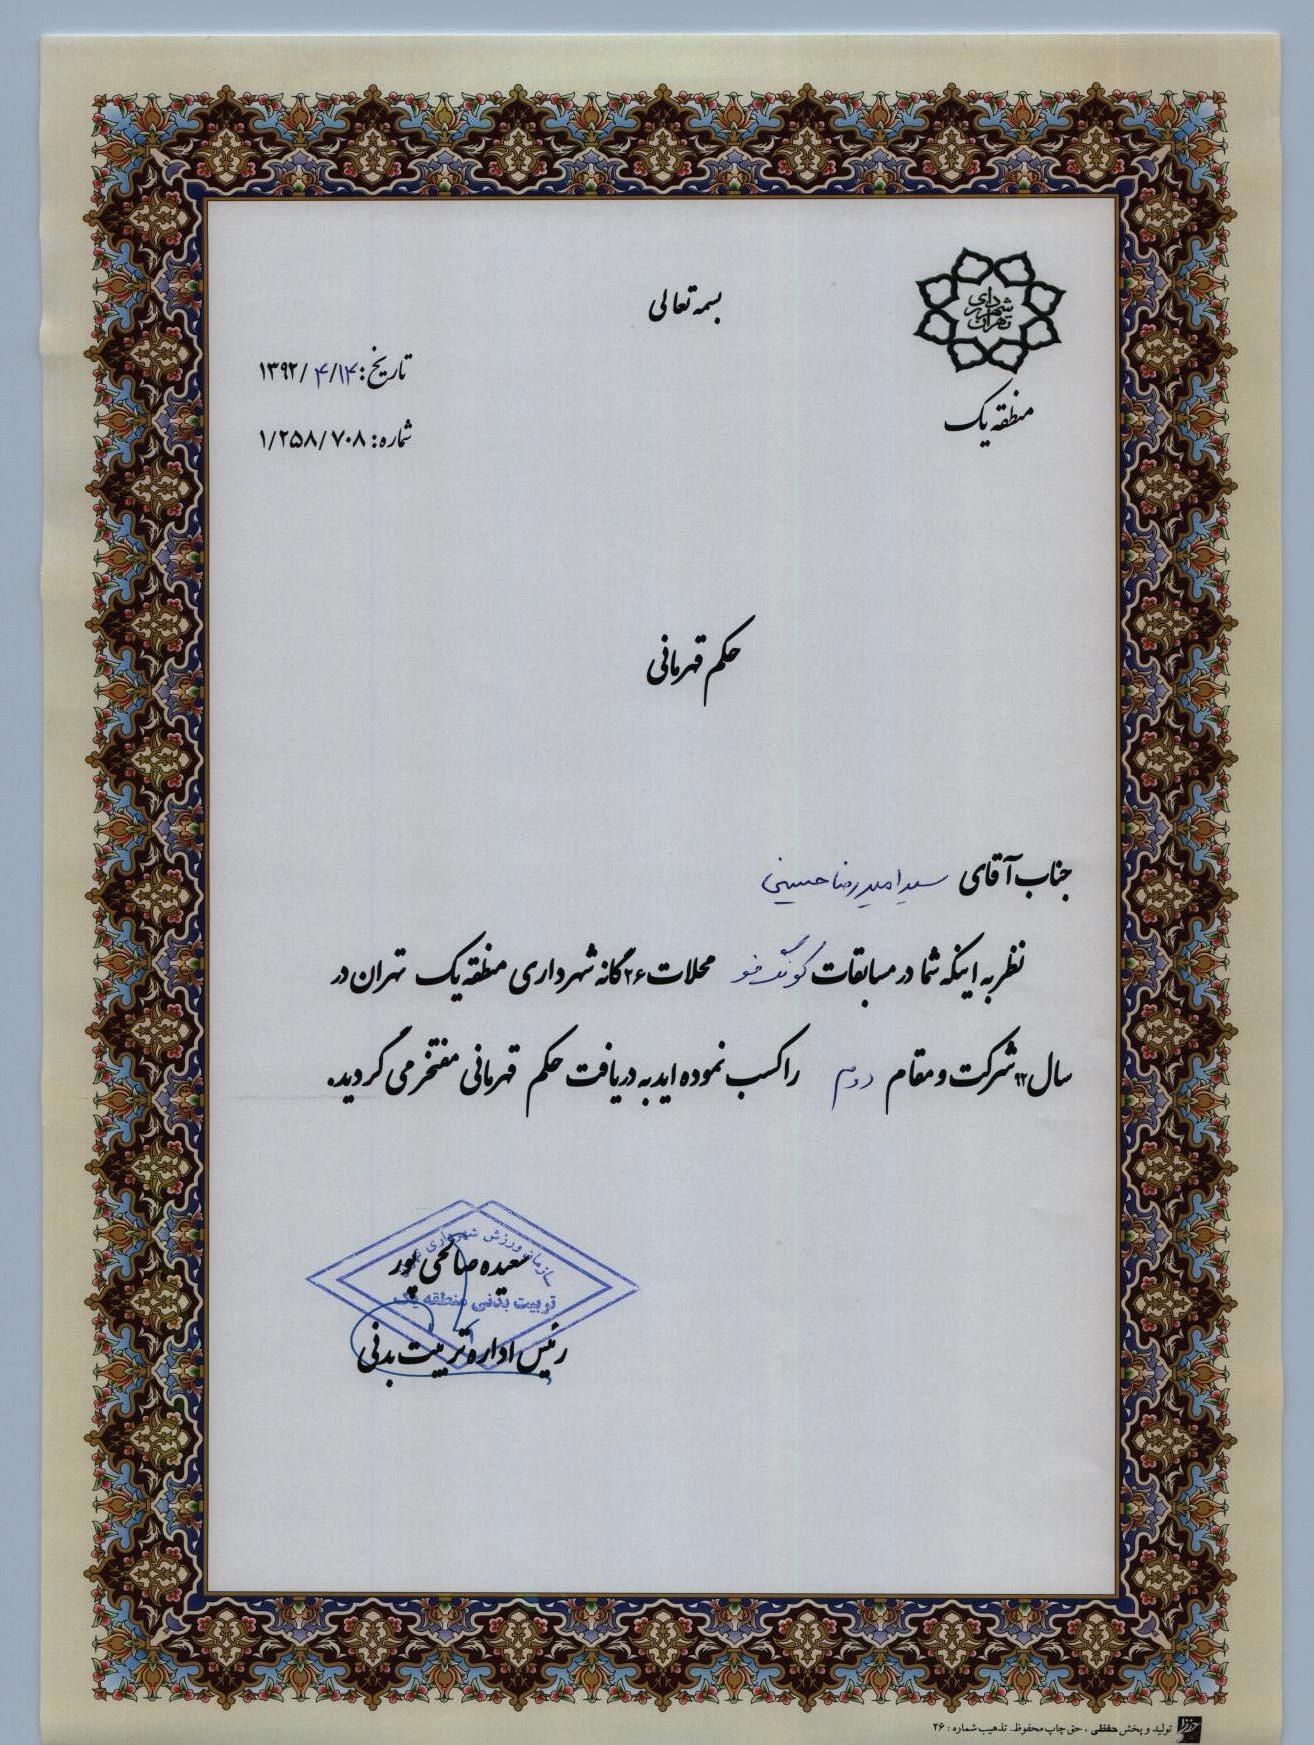 بسمه تعالی
شهرداری
تهران
منطقه یک
تاریخ: ۱۳۹۲/۴/۱۴
شماره: ۱/۲۵۸/۷۰۸
حکم قهرمانی
جناب آقای سید امیررضا حسینی
نظر به اینکه شما در مسابقات کونگ فو محلات ۲۶ گانه شهرداری منطقه یک تهران در
سال ۹۲ شرکت و مقام دوم را کسب نموده اید به دریافت حکم قهرمانی مفتخر می گردید.
سازمان ورزش شهرداری
سعیده صالحی پور
تربیت بدنی منطقه یک
رئیس اداره تربیت بدنی
تولید و پخش حافظی ، حق چاپ محفوظ. تذهیب شماره : ۲۶